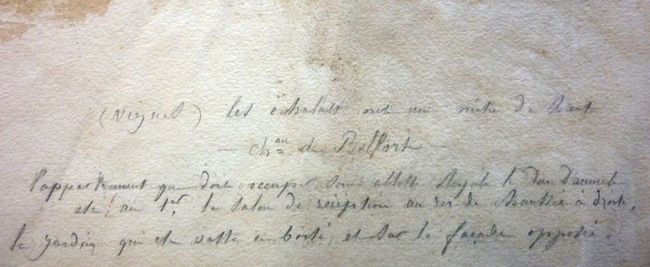 (vignes) les échalats ont un mètre de haut
— chau de Belfort —
l'appartement que doit occuper Son altesse Royale le Duc d'aumale
est au 1er, le salon de réception au rez de chaussée à droite,
le jardin qui est vaste en boité, et sur la façade opposée.